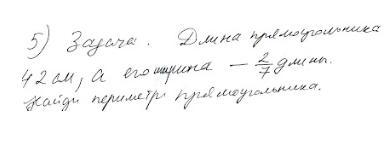 5) Задача. Длина прямоугольника
42 см, а его ширина – 2/7 длины.
Найди периметр прямоугольника.